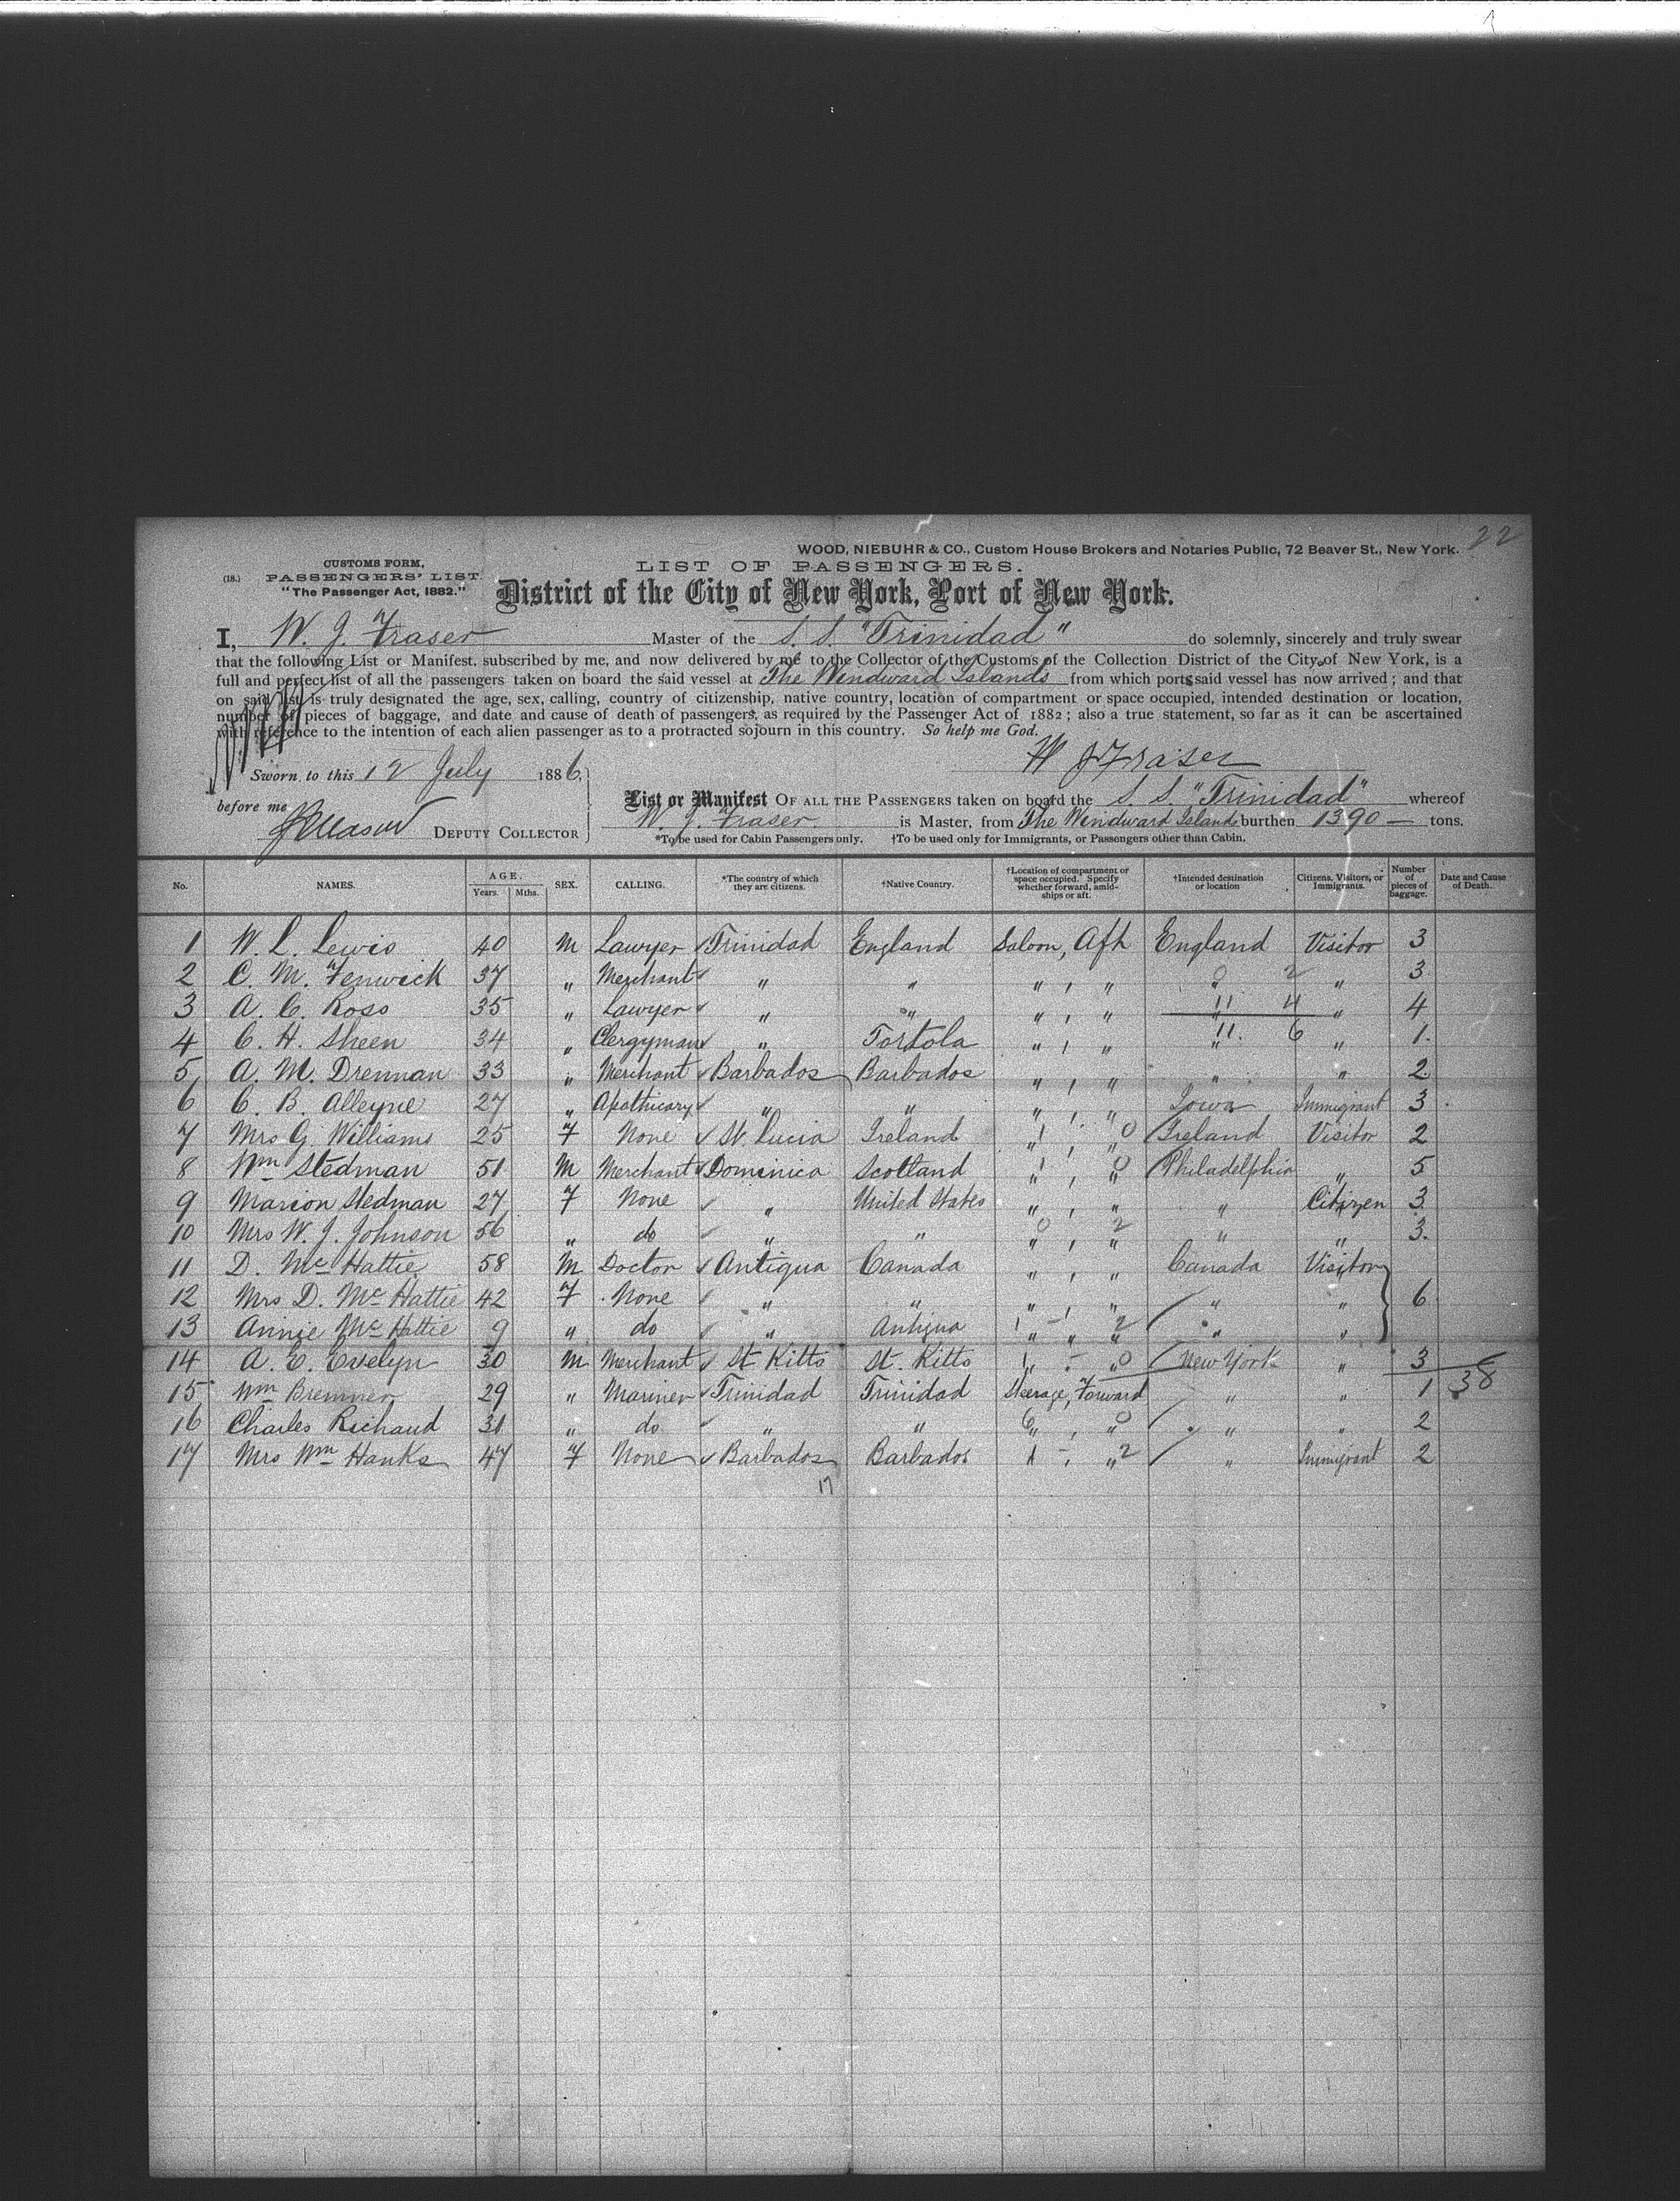 22
WOOD, NIEBUHR & CO., Custom House Brokers and Notaries Public, 72 Beaver St., New York.
CUSTOMS FORM,
(18.) PASSENGERS' LIST.
"The Passenger Act, 1882."
LIST OF PASSENGERS.
District of the City of New York, Port of New York.
I, W. J. Fraser Master of the S. S. "Trinidad" do solemnly, sincerely and truly swear
that the following List or Manifest, subscribed by me, and now delivered by me to the Collector of the Customs of the Collection District of the City of New York, is a
full and perfect list of all the passengers taken on board the said vessel at The Windward Islands from which ports said vessel has now arrived; and that
on said list is truly designated the age, sex, calling, country of citizenship, native country, location of compartment or space occupied, intended destination or location,
number of pieces of baggage, and date and cause of death of passengers, as required by the Passenger Act of 1882; also a true statement, so far as it can be ascertained
with reference to the intention of each alien passenger as to a protracted sojourn in this country. So help me God.
W J Fraser
Sworn to this 12 July 1886,
before me
DEPUTY COLLECTOR
List or Manifest OF ALL THE PASSENGERS taken on board the S. S. "Trinidad" whereof
W. J. Fraser is Master, from The Windward Islands burthen 1390 — tons.
*To be used for Cabin Passengers only. †To be used only for Immigrants, or Passengers other than Cabin.
No. NAMES. AGE. Years. Mths. SEX. CALLING. *The country of which they are citizens. †Native Country. †Location of compartment or space occupied. Specify whether forward, amidships or aft. †Intended destination or location Citizens, Visitors, or Immigrants. Number of pieces of baggage. Date and Cause of Death.
1 W. L. Lewis 40 M Lawyer Trinidad England Saloon, Aft England Visitor 3
2 C. M. Fenwick 37 " Merchant " " " , " " " 3
3 A. C. Ross 35 " Lawyer " " " , " " 11 4 " 4
4 C. H. Sheen 34 " Clergyman " Tortola " , " " 11. 6 " 1.
5 A. M. Drennan 33 " Merchant Barbados Barbados " , " " " 2
6 C. B. Alleyne 27 " Apothicary " " " , " Iowa Immigrant 3
7 Mrs G. Williams 25 F None St. Lucia Ireland " , " Ireland Visitor 2
8 Wm Stedman 51 M Merchant Dominica Scotland " , " Philadelphia " 5
9 Marion Stedman 27 F None " United States " , " " Citizen 3
10 Mrs W. J. Johnson 56 " do " " " , " " " 3.
11 D. McHattie 58 M Doctor Antigua Canada " , " Canada Visitor
12 Mrs D. McHattie 42 F None " " " , " " " 6
13 Annie McHattie 9 " do " Antigua " " " " "
14 A. E. Evelyn 30 M Merchant St Kitts St. Kitts " " New York " 3
15 Wm Bremner 29 " Mariner Trinidad Trinidad Steerage, Forward " " 1 38
16 Charles Richaud 31 " do " " " , " " " 2
17 Mrs Wm Hanks 47 F None Barbados Barbados " " " Immigrant 2
17